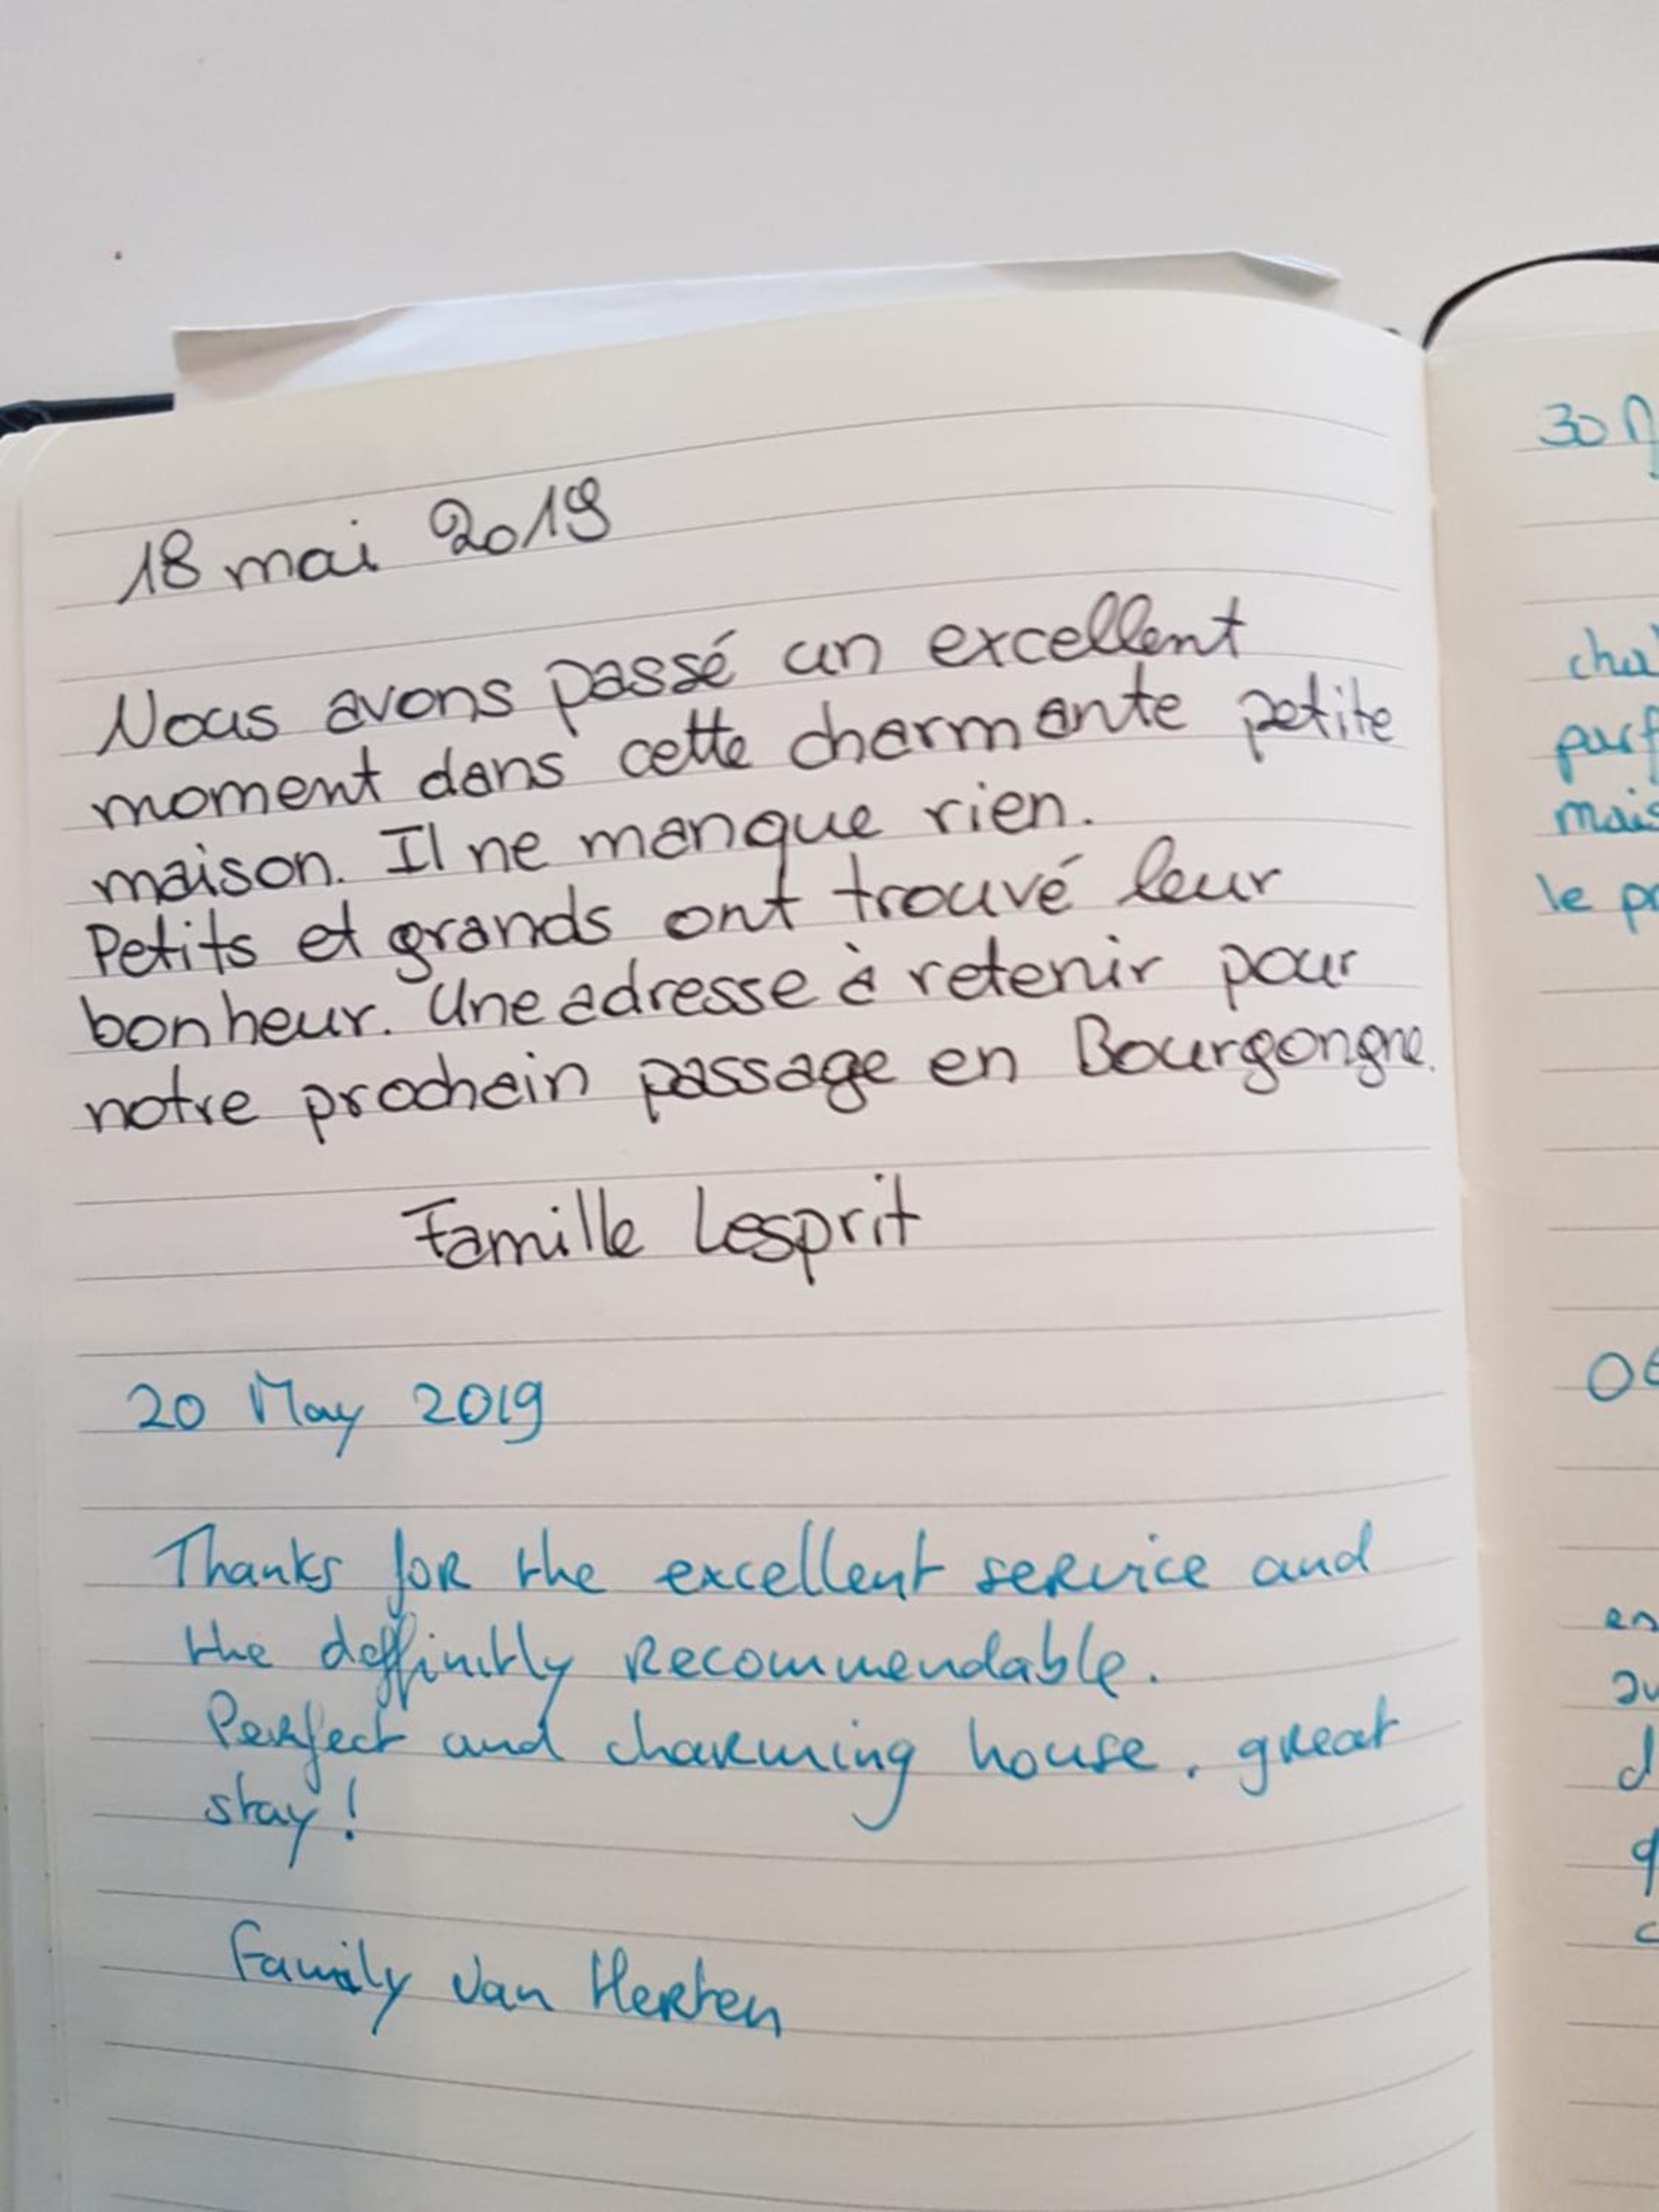 18 mai 2019
Nous avons passé un excellent
moment dans cette charmante petite
maison. Il ne manque rien.
Petits et grands ont trouvé leur
bonheur. Une adresse à retenir pour
notre prochain passage en Bourgongne.
Famille Lesprit
20 May 2019
Thanks for the excellent service and
the deffinitly recommendable.
Perfect and charming house, great
stay!
Family van Herten
30
mais
le